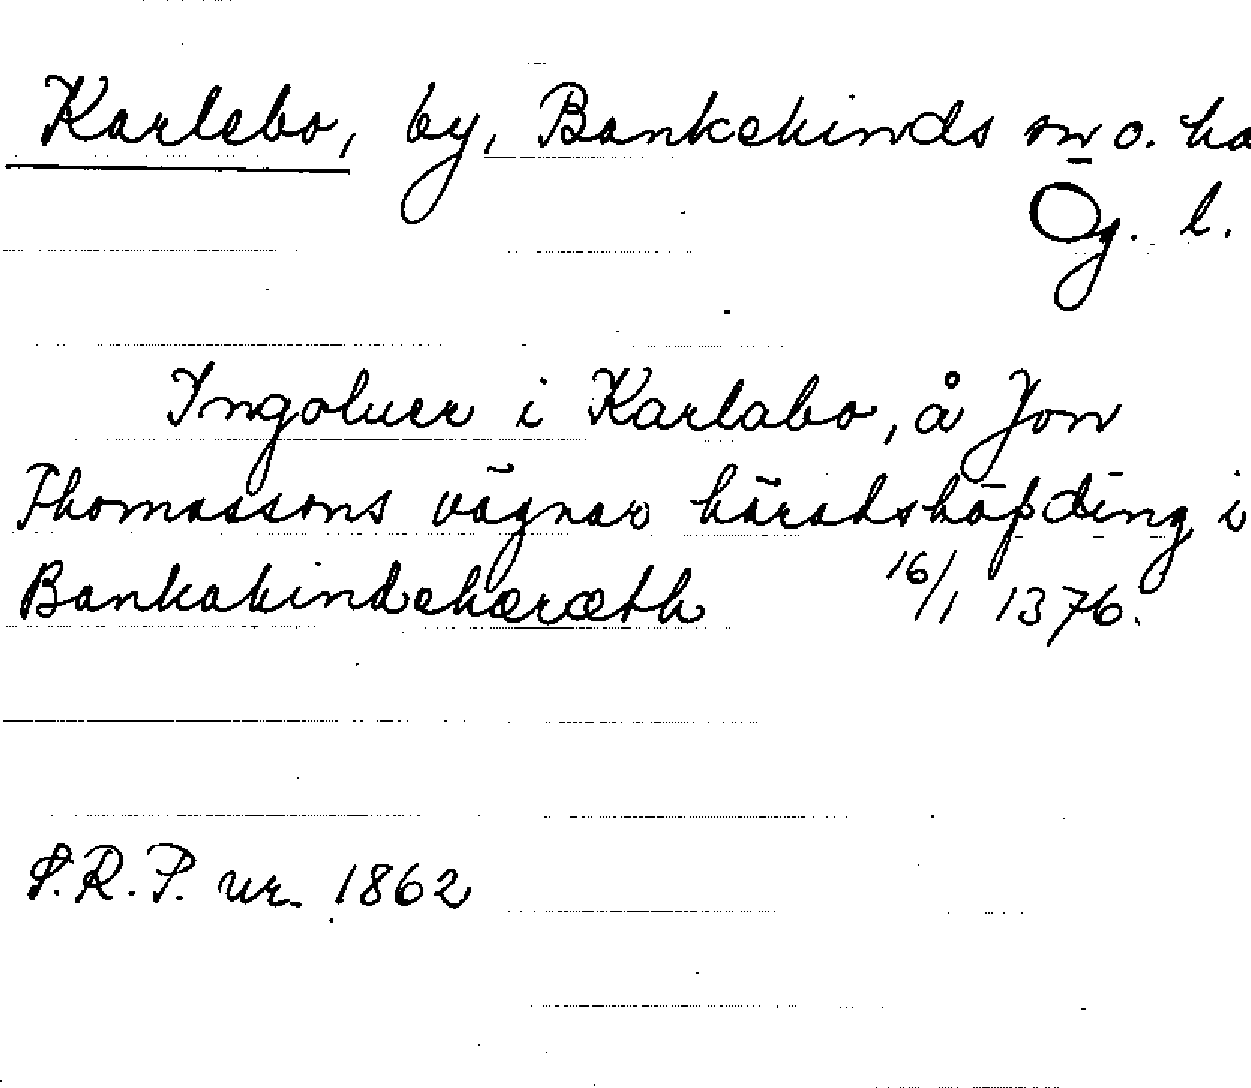 Karlebo, by, Bankekinds sn o. ha
Ög. l.
Ingoluer i Karlabo, å Jon
Thomassons vägnar häradshöfding i
Bankakindshæræth 16/1 1376.
S.R.P. nr. 1862